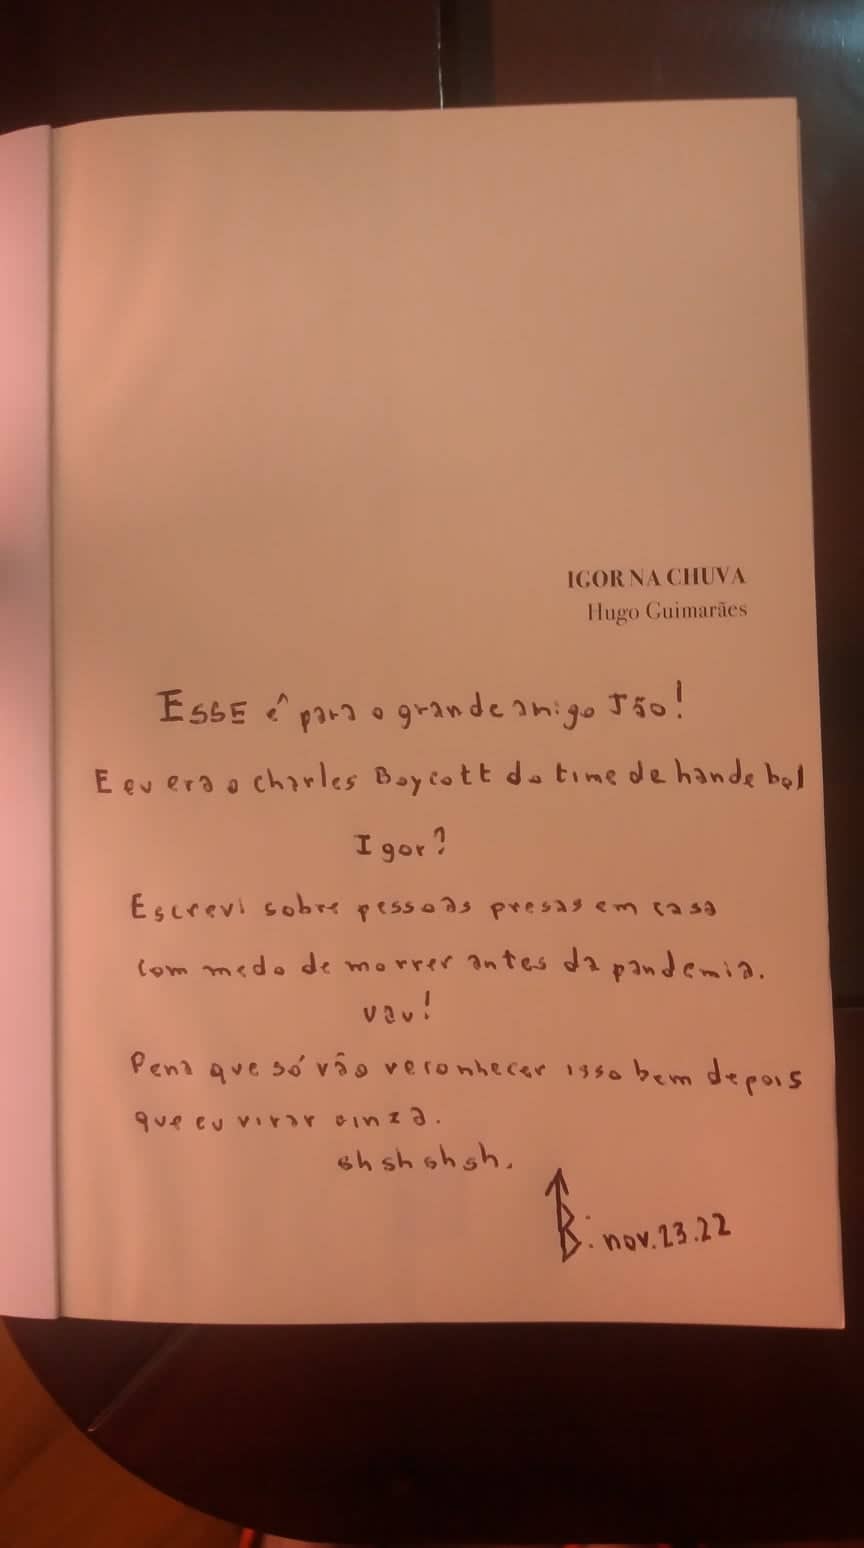 IGOR NA CHUVA
Hugo Guimarães
ESSE é para o grande amigo Jão!
E eu era o charles Boycott do time de handebol
Igor?
Escrevi sobre pessoas presas em casa
com medo de morrer antes da pandemia.
vav!
Pena que só vão reconhecer isso bem depois
que eu virar cinza.
sh sh sh sh.
B. nov.23.22